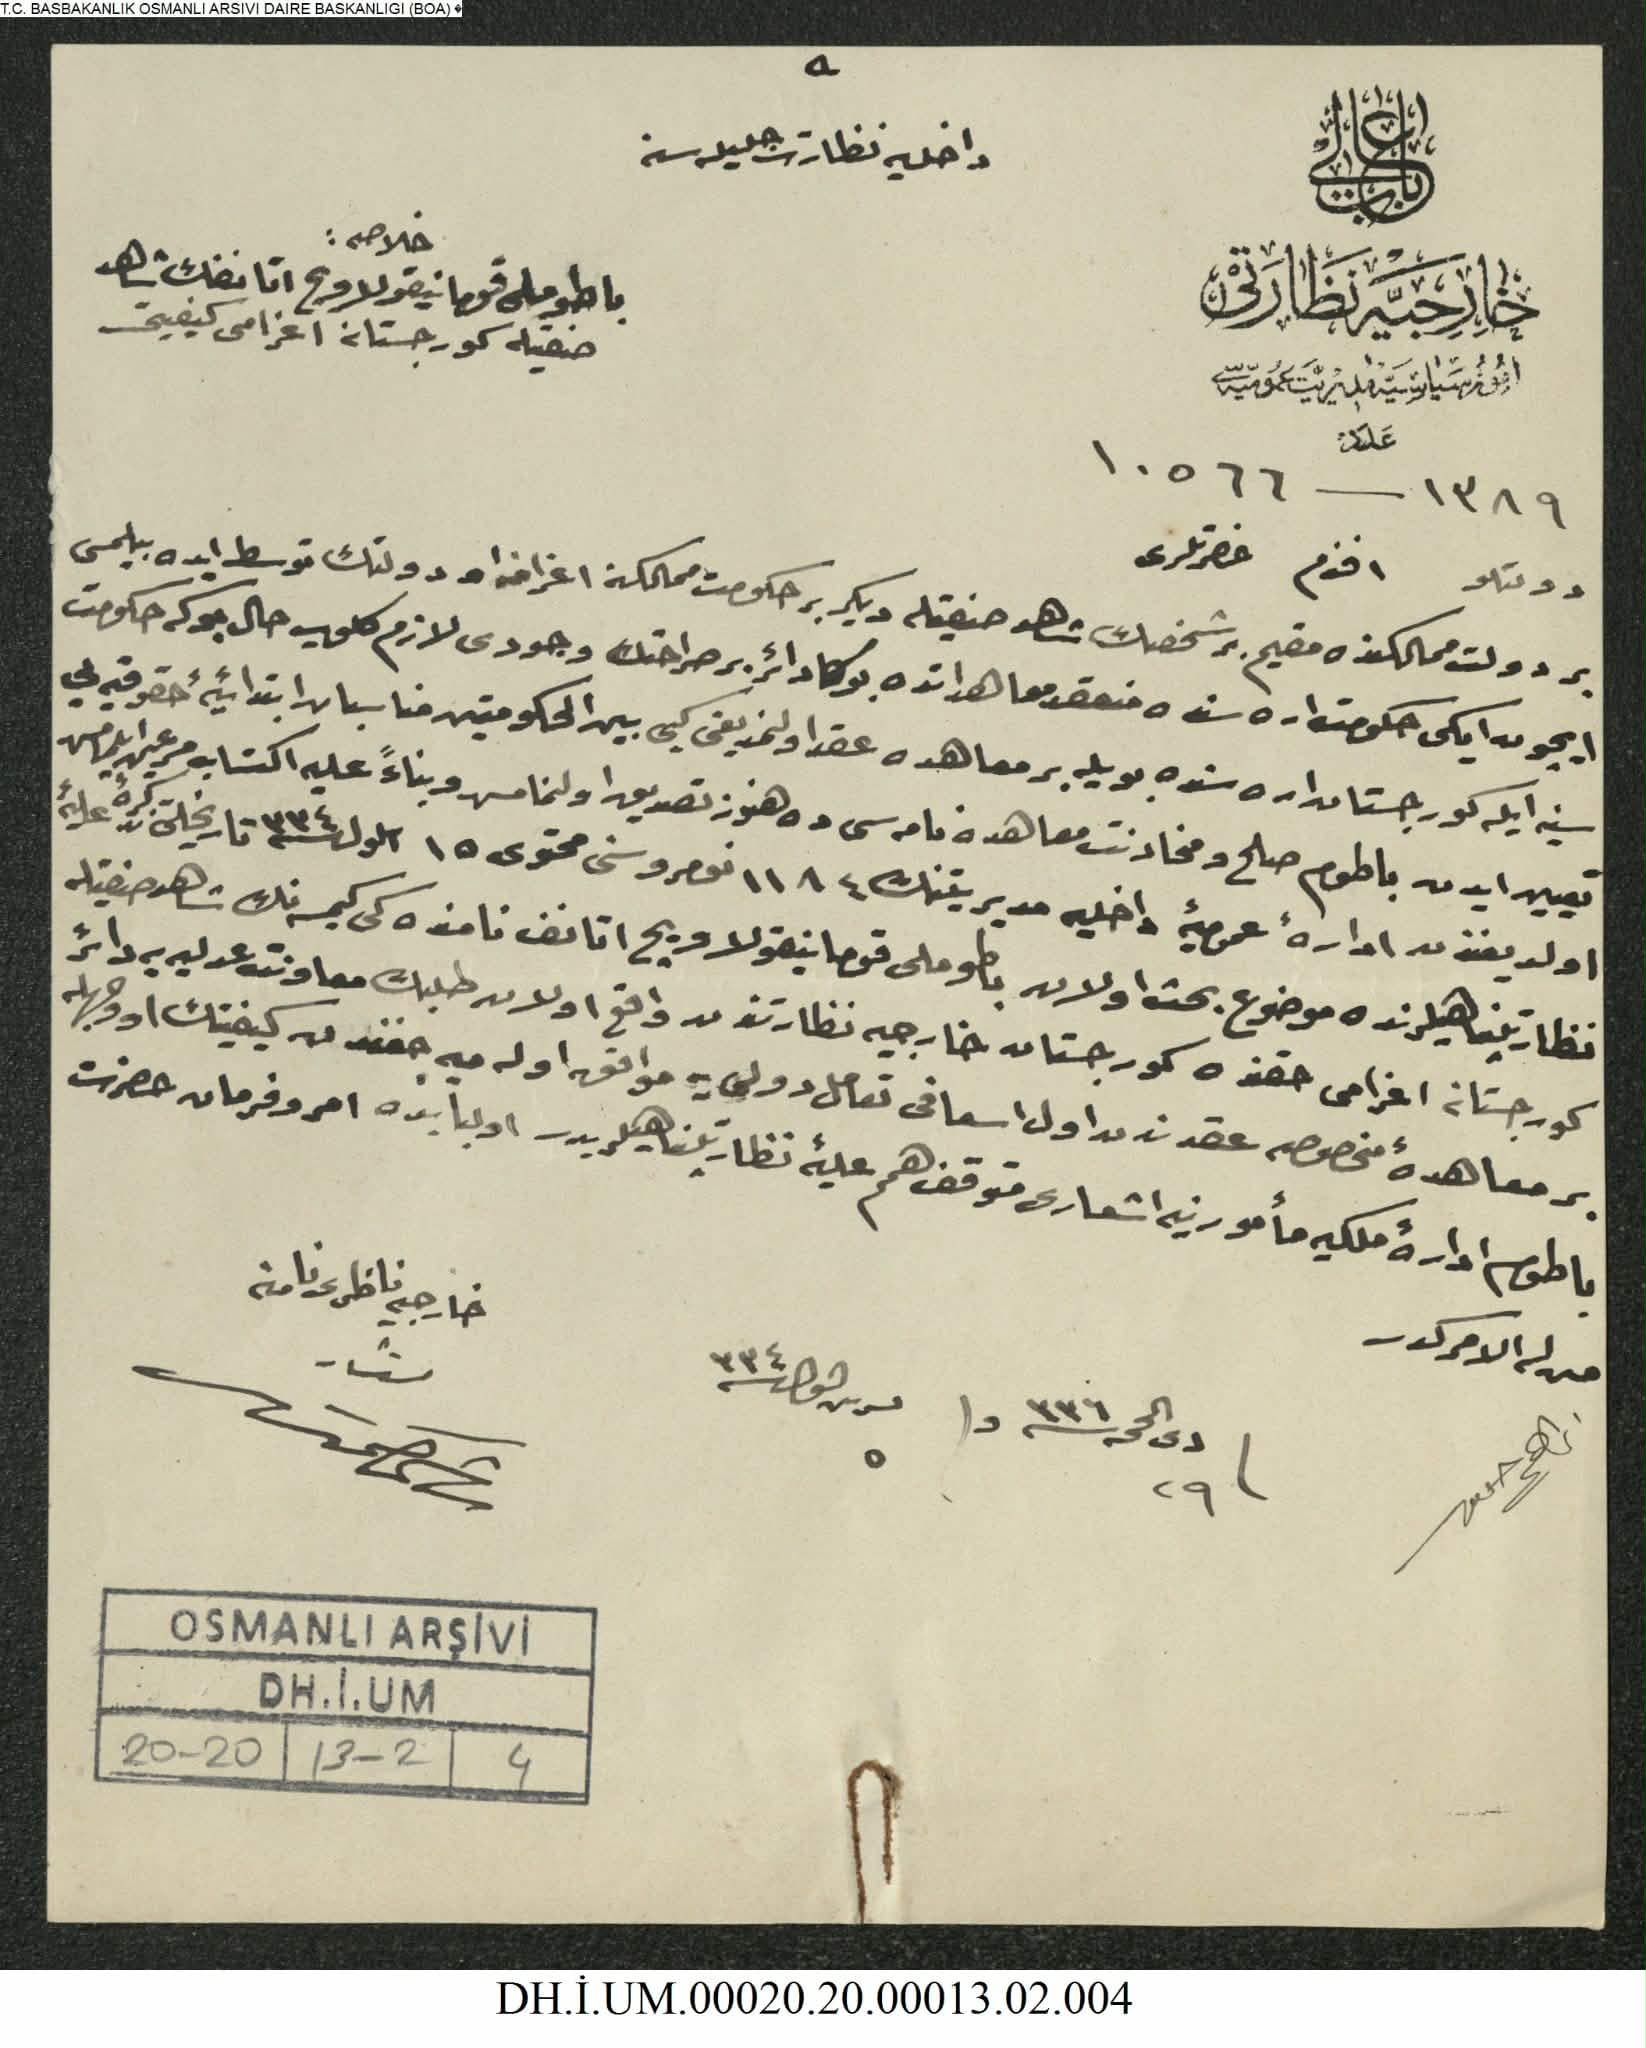 T.C. BASBAKANLIK OSMANLI ARSIVI DAIRE BASKANLIGI (BOA)
باب عالی
داخلیه نظارت جلیله سنه
خارجیه نظارتی
امور سیاسیه مدیریت عمومیه سی
عدد
١٣٨٩ — ١٠٥٦٦
خلاصه :
باطوملی قوما نیقولاویچ اتانفك شاهد
صفتیله كورجستانه اعزامی كیفیتی
دولتلو افندم حضرتلری
بر دولت ممالكنده مقیم بر شخصك شاهد صفتیله دیكر بر حكومت ممالكنه اعزامنه او دولتك توسط ایده بیلمسی
ایچون ایكی حكومت اره سنده منعقد معاهداتده بوكا دائر بر صراحتك وجودی لازم كلوب حال بوكه حكومت
سنیه ایله كورجستان اره سنده بویله بر معاهده عقد اولنمدیغی كبی بین الحكومتین مناسبات ابتدائیۀ حقوقیه یی
تعیین ایدن باطوم صلح و مخادنت معاهده نامه سی ده هنوز تصدیق اولنمامس و بناءً علیه اكتساب مرعیت ایلمامس
اولدیغندن ادارۀ عمومیۀ داخلیه مدیریتنك ١١٨٤ نومروسنی محتوی ١٥ ایلول سنه ٣٣٤ تاریخلی تذكرۀ علیۀ
نظارتپناهیلرنده موضوع بحث اولان باطوملی قوما نیقولاویچ اتانف نامنده كی كیمسه نك شاهد صفتیله
كورجستانه اعزامی حقنده كورجستان خارجیه نظارتندن واقع اولان طلبك معاونت عدلیه یه دائر
بر معاهدۀ مخصوصه عقدندن اول اسعافی تعامل دولی یه موافق اوله میه جغندن كیفیتك اووجهله
باطوم ادارۀ ملكیه مأمورینه اشعاری متوقف همم علیۀ نظارتپناهیلریدر اولبابده امر و فرمان حضرت
من له الامركدر
فی ٢٩ ذی الحجه سنه ٣٣٦ و فی ٥ تشرین اول سنه ٣٣٤
خارجیه ناظری نامنه
مستشار
OSMANLI ARŞİVİ
DH.İ.UM
20-20 | 13-2 | 4
DH.İ.UM.00020.20.00013.02.004